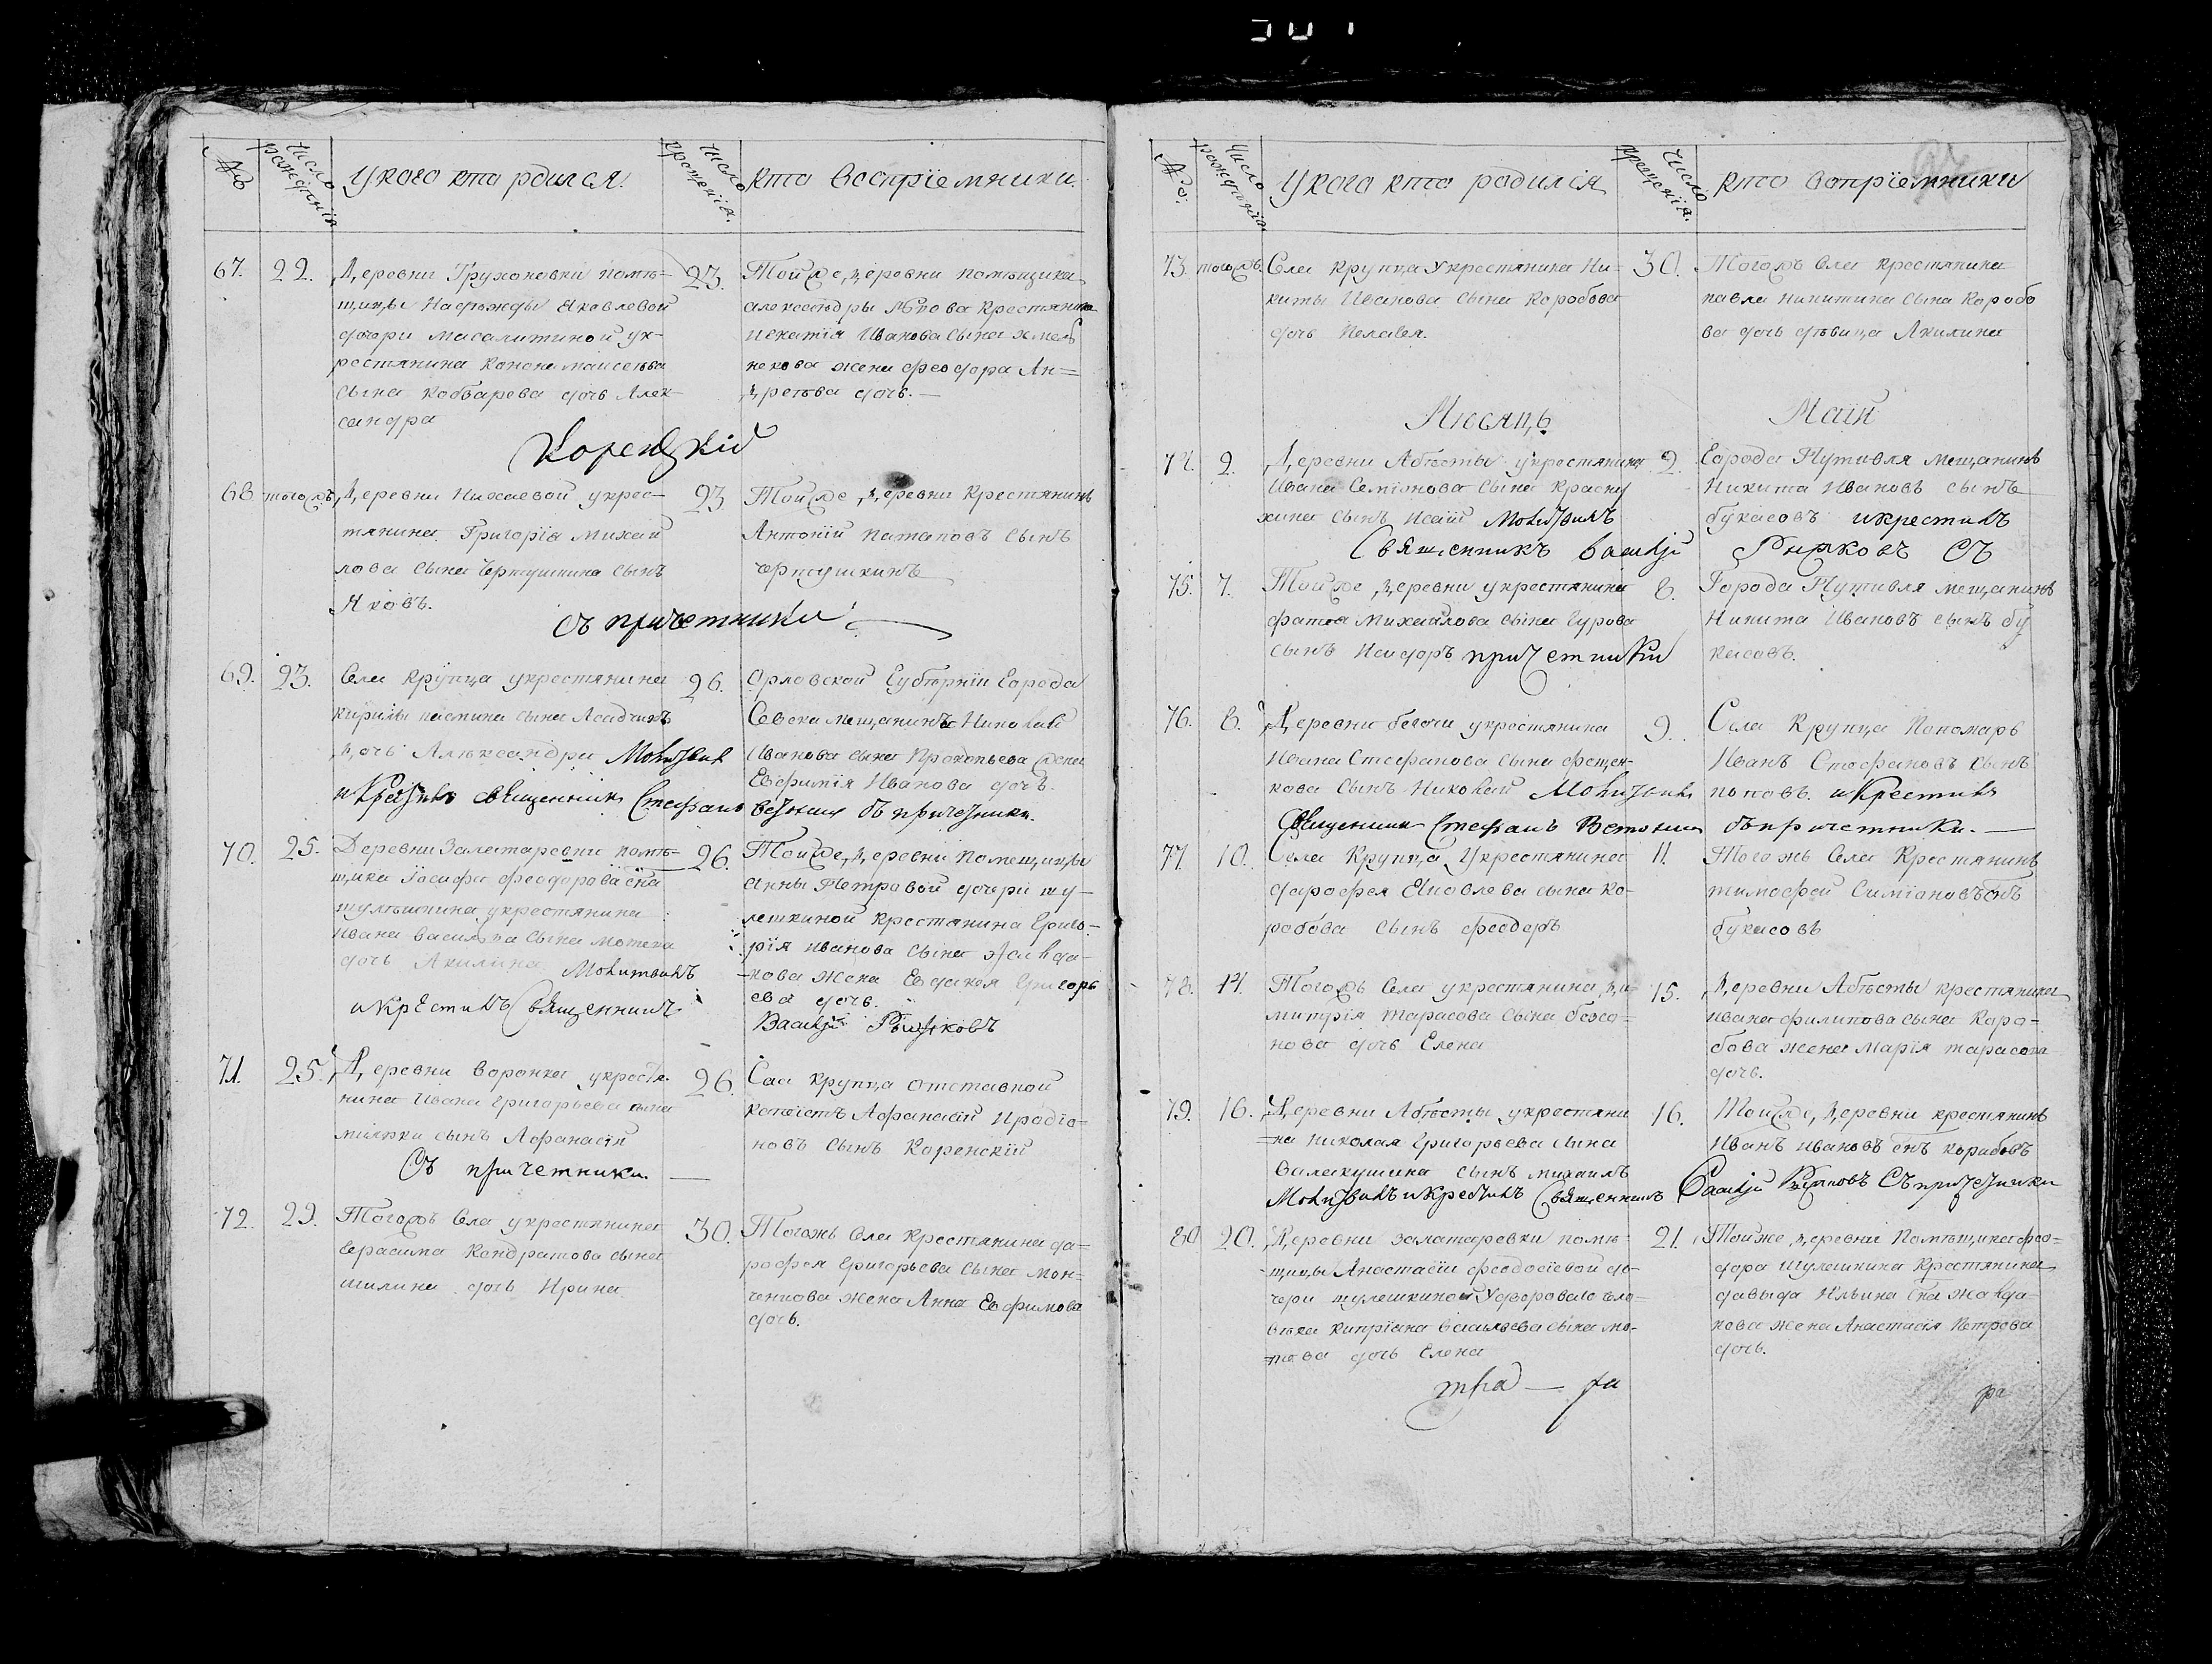 №
число рождения
у кого кто рдился.
число крещенiя.
кто воспрiемники.
67.
22.
Деревни Грузоновки помѣ-
щицы Надѣжды Яковлевой
дочери масалитиной у кре-
рестянина Конона моисеева
сына кобзарева дочь Алек-
сандра
23.
Той же деревни помѣщика
Попова крестянина
Игнатiя Иванова сына
жена феодора Ан=
дреева дочь.—
Коренскiй
68
тогожъ
Деревни Нихаевой у крес-
тянина Григорiя Михай
лова сына Чертушкина сынъ
Яковъ.
23
Той же деревни крестянинъ
Антонiй Патаповъ сынъ
чертушкинъ
съ причетники
69.
23.
Села крупца у крестянина
кирилы сына
дочь Александра Молитвил
и крестилъ священникъ Стефанъ
26.
Орловской Губѣрнiи Города
Севска мещанина Николая
Иванова сына Прокопьева жена
Евфимiя Иванова дочь.
съ причетники.
70.
25.
Деревни Залатаревки помѣ-
щика Iосифа феодорова сна
шулешкина у крестянина
ивана васильева сына
дочь Акилина Молитвилъ
и крестилъ священникъ
26.
Той же деревни Помещицы
анны Петровой дочери шу-
лешкиной крестянина григо-
рiя иванова сына жавда-
кова жена Евдокея Григорь
ева дочь.
Василiй Рыжковъ
71.
25.
Деревни воронка у крестя-
нина Ивана Григорьева сына
сынъ Афанасiй
26.
Села крупца отставной
копеистъ Афанасiй Иродiо-
новъ сынъ Коренскiй
Съ причетники. —
72.
29.
Тогожъ Села у крестянина
Герасима Кондратова сына
шилина дочь Ирина
30.
Тогожъ Села крестянина до-
рофея Григорьева сына мон-
ченкова жена Анна Евфимова
дочь.
№.
Число рожденiя
у кого кто родился
Число крещенiя.
кто вопрiемники
97
73.
тогожъ.
Села крупца у крестянина Ни-
киты Иванова сына коробова
дочь Пелагея.
30.
Тогожъ Села крестянина
павла никитина сына коробо
ва дочь дѣвица Акилина
Мѣсяцъ
Маiй
74.
2.
Деревни Абѣсты у крестянина
Ивана Семiонова сына красну
хина сынъ Исаiй Молитвилъ
2.
Города Путивля мещанинъ
Никита Ивановъ сынъ
букасовъ и крестилъ
Священникъ Василiй Рыжковъ Съ
75.
7.
Той же деревни у крестянина
фатея Михайлова сына Гурова
сынъ Исидоръ причетники
8.
Города Путивля мещанинъ
Никита Ивановъ сынъ бу
касовъ.
76.
8.
Деревни бегочи у крестянина
Ивана Стефанова сына фещен-
кова сынъ Николай Молитвилъ
9.
Села крупца Пономарь
Иванъ Стефановъ сынъ
поповъ. и крестилъ
Священникъ Стефанъ съ причетники. —
77
10.
Села Крупца у крестянина
дорофея Яковлева сына ко-
робова сынъ феодоръ
11.
Тогожъ Села Крестянинъ
тимофей Симiоновъ снъ
букасовъ
78.
14.
Тогожъ Села у крестянина ди
митрiя тарасова сына
дочь Елена
15.
Деревни Абѣсты крестянина
ивана филипова сына Коро=
бова жена Марiя тарасова
дочь.
79.
16.
Деревни Абѣсты у крестяни
=на николая Григорьева сына
балакушина сынъ михаилъ
16.
Той же деревни крестянинъ
Иванъ ивановъ снъ коробовъ
Молитвилъ и крестилъ Священникъ Василiй Рыжковъ Съ причетники
80
20.
Деревни залатаревки помѣ-
щицы Анастасiи феодосiевой до-
чери шулешкиной у двороваго чело-
вѣка киприана васильева сына
дочь Елена
21.
Той же деревни Помѣщика фео=
дора шулешкина Крестянина
давыда Ильина сна жавда-
кова жена Анастасiя Петрова
дочь.